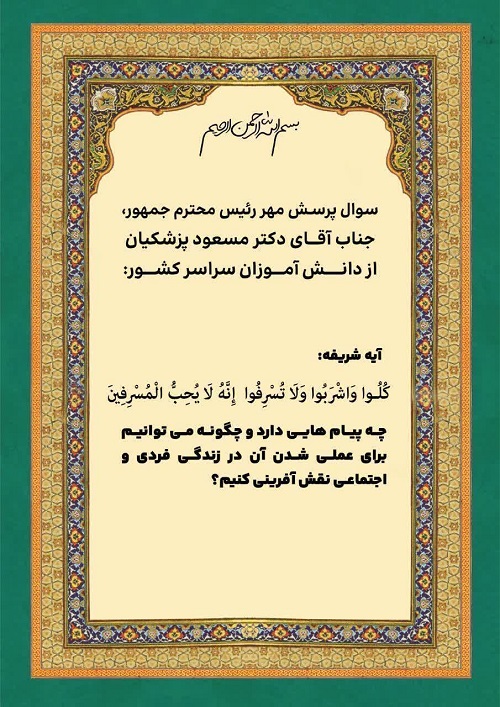 بسم الله الرحمن الرحیم
سوال پرسش مهر رئیس محترم جمهور،
جناب آقای دکتر مسعود پزشکیان
از دانش آموزان سراسر کشور:
آیه شریفه:
كُلُوا وَاشْرَبُوا وَلَا تُسْرِفُوا إِنَّهُ لَا يُحِبُّ الْمُسْرِفِينَ
چه پیام هایی دارد و چگونه می توانیم
برای عملی شدن آن در زندگی فردی و
اجتماعی نقش آفرینی کنیم؟